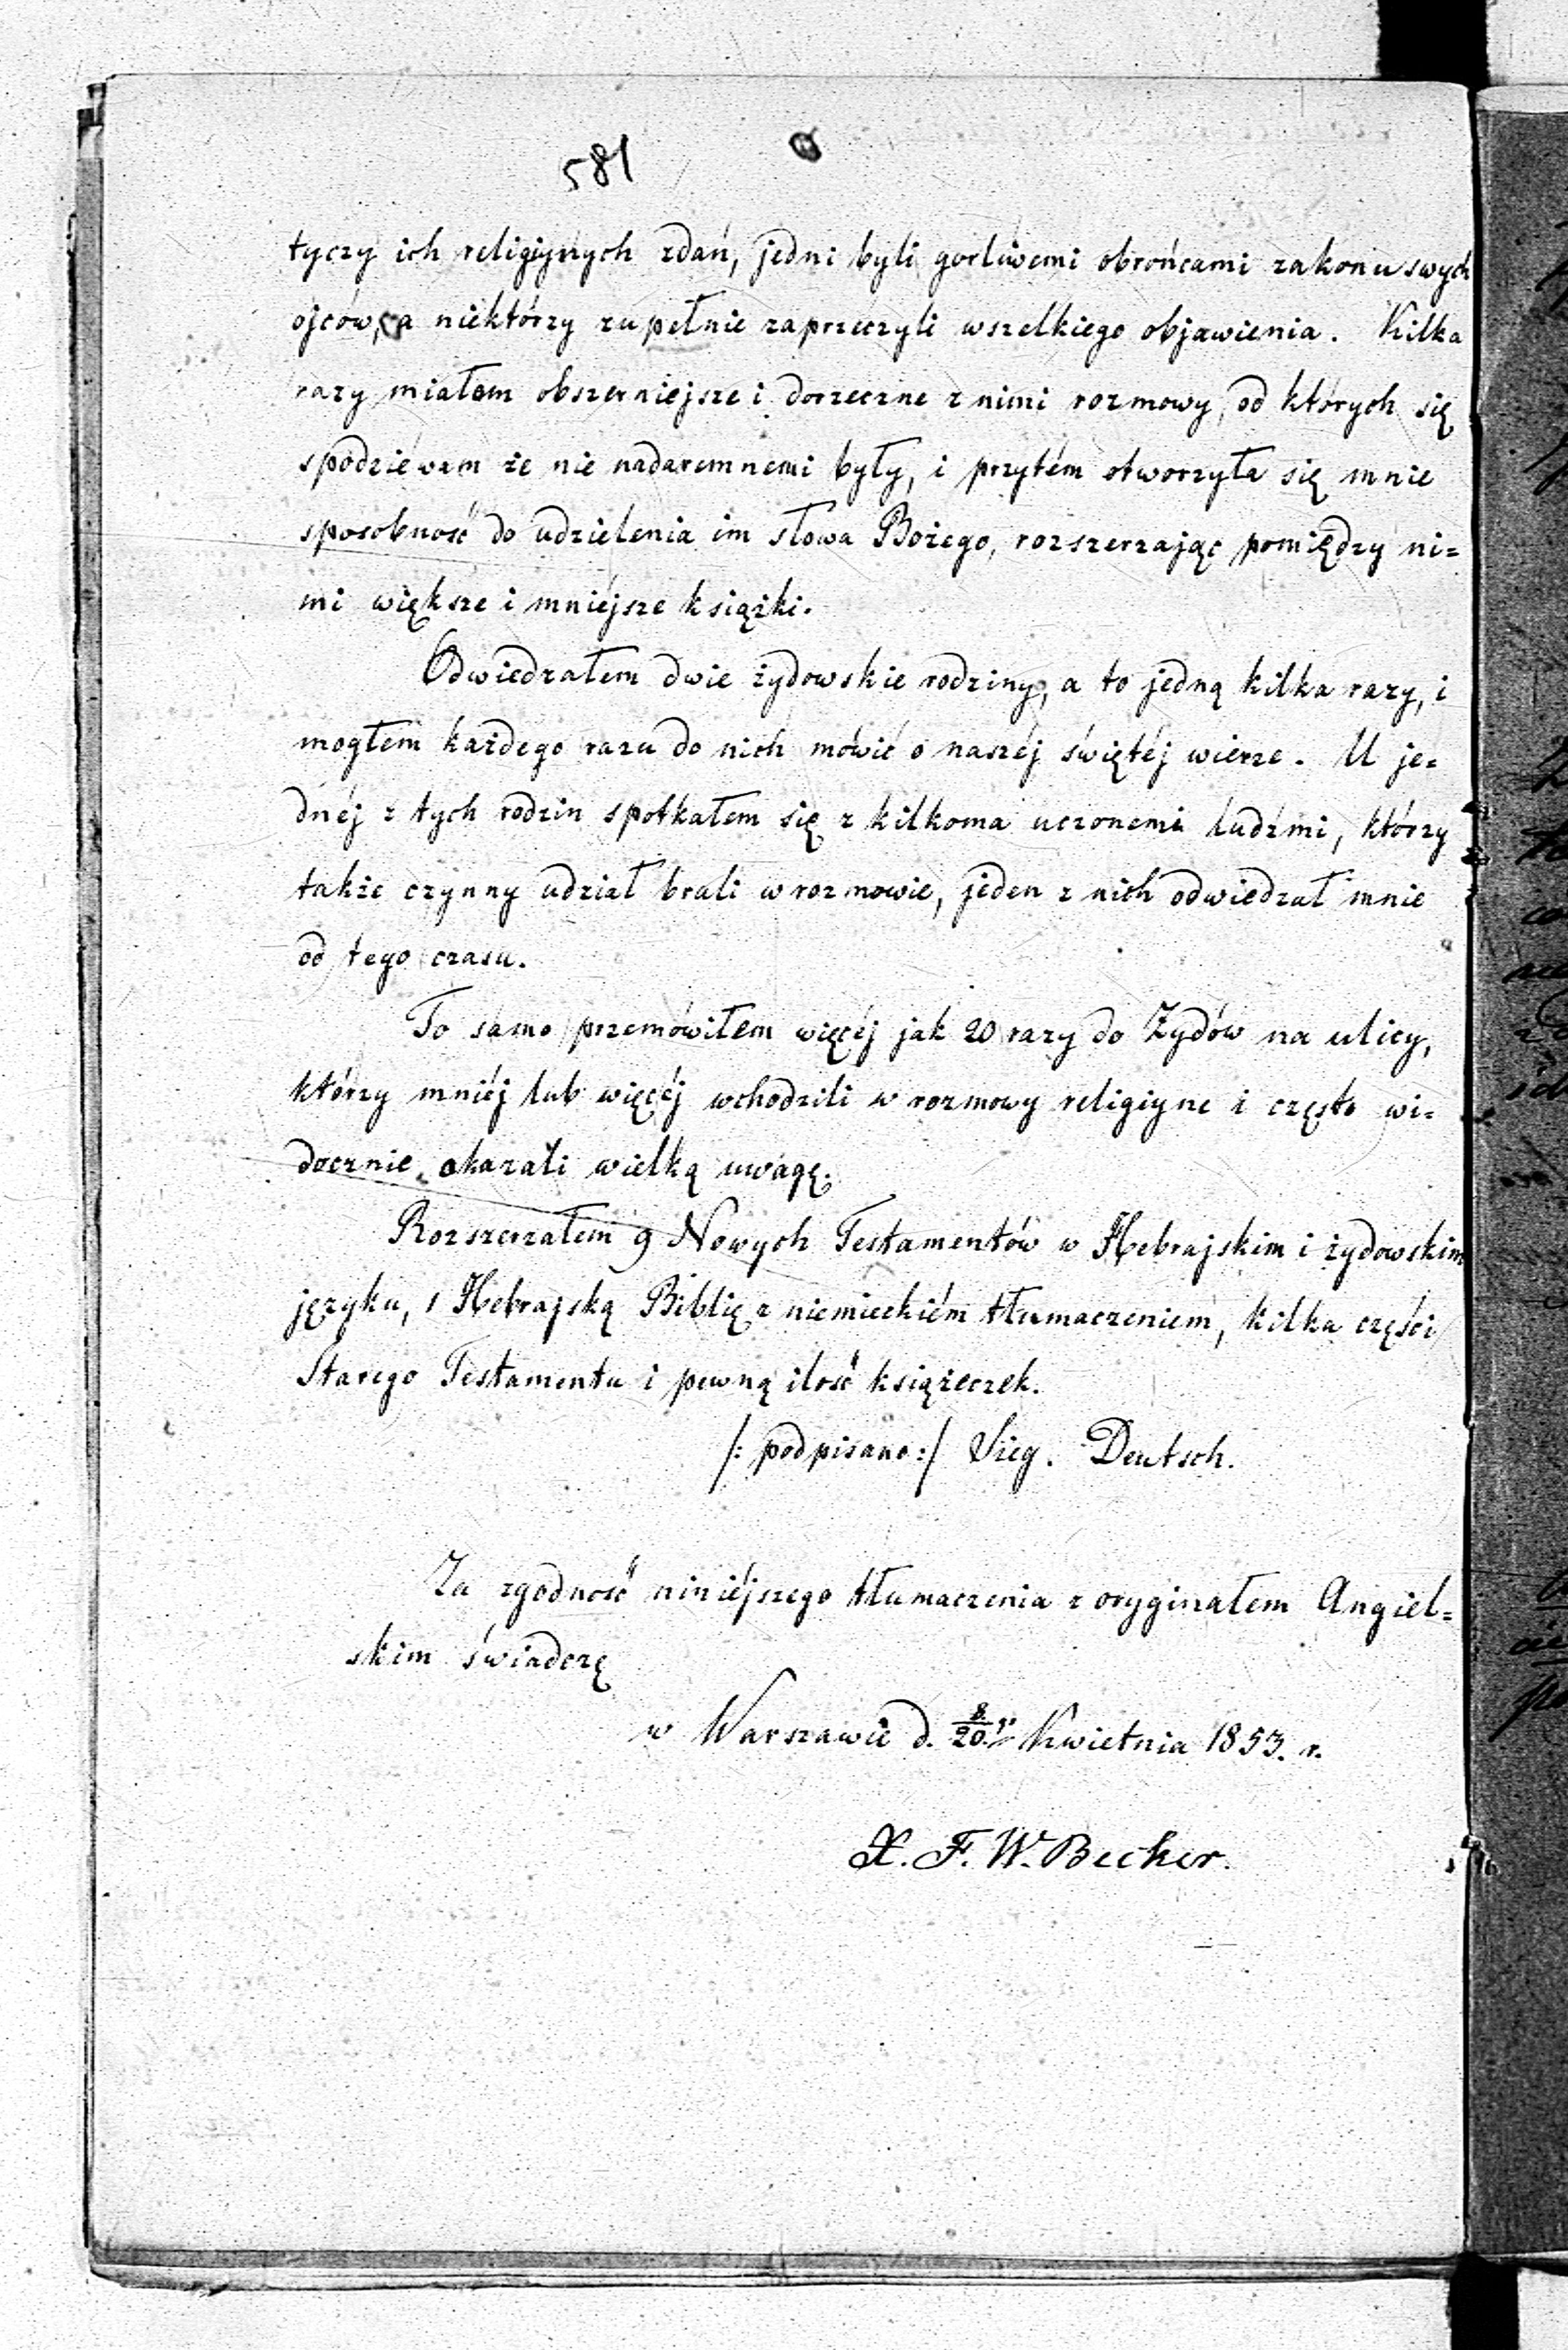 581
tyczy ich religijnych zdań, jedni byli gorliwemi obrońcami zakonu swych
ojców, a niektórzy zupełnie zaprzeczyli wszelkiego objawienia. Kilka
razy miałem obszerniejsze i dorzeczne z nimi rozmowy, od których się
spodziewam że nie nadaremnemi były, i przytém otworzyła się mnie
sposobność do udzielenia im słowa Bożego, rozszerzając pomiędzy ni=
mi większe i mniéjsze książki.
Odwiedzałem dwie żydowskie rodziny, a to jedną kilka razy, i
mogłem każdego razu do nich mówić o naszéj świętéj wierze. U je=
dnéj z tych rodzin spotkałem się z kilkoma uczonemi ludźmi, którzy
także czynny udział brali w rozmowie, jeden z nich odwiedzał mnie
od tego czasu.
To samo przemówiłem więcéj jak 20 razy do Żydów na ulicy,
którzy mniéj lub więcéj wchodzili w rozmowy religiyne i często wi=
docznie okazali wielką uwagę.
Rozszerzałem 9 Nowych Testamentów w Hebrajskim i żydowskim
języku, 1 Hebrajską Biblię z niemieckiém tłumaczeniem, kilka części
Starego Testamentu i pewną ilość książeczek.
/: podpisano :/ Sieg. Deutsch.
Za zgodność niniéjszego tłumaczenia z oryginałem Angiel=
skim świadczę
w Warszawie d. 8/20. Kwietnia 1853. r.
X. F. W. Becker.